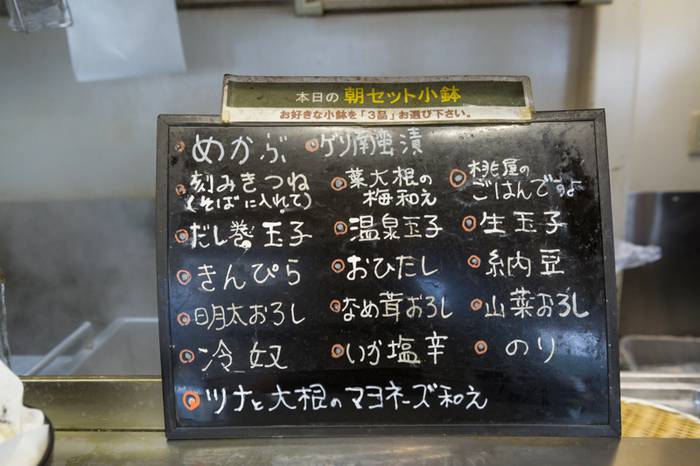 本日の 朝セット小鉢
お好きな小鉢を「3品」お選び下さい。
めかぶ ゲソ南蛮漬
刻みきつね
(そばに入れて)
葉大根の
梅和え
桃屋の
ごはんですよ
だし巻玉子 温泉玉子 生玉子
きんぴら おひたし 納豆
明太おろし なめ茸おろし 山菜おろし
冷奴 いか塩辛 のり
ツナと大根のマヨネーズ和え